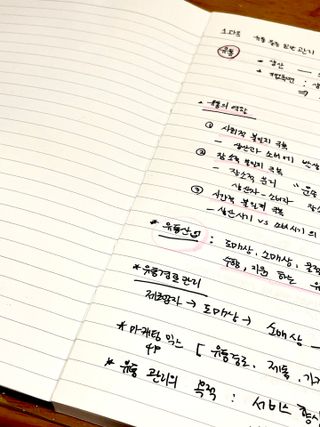 1과목 유통
유통
• 생산 —
⇒
• 유통의 역할
① 사회적 불일치 극복
– 생산과 소비에
② 장소적 불일치 극복
– 장소적 분리
생산자 – 소비자
③ 시간적 불일치 극복
– 생산시기 vs 소비시기의
* 유통산업 : 도매상, 소매상,
수행, 지원 하는
* 유통경로관리
제조업자 → 도매상 → 소매상
* 마케팅 믹스 [ 유통경로, 제품, 가
4P
* 유통 관리의 목적 : 서비스 향상